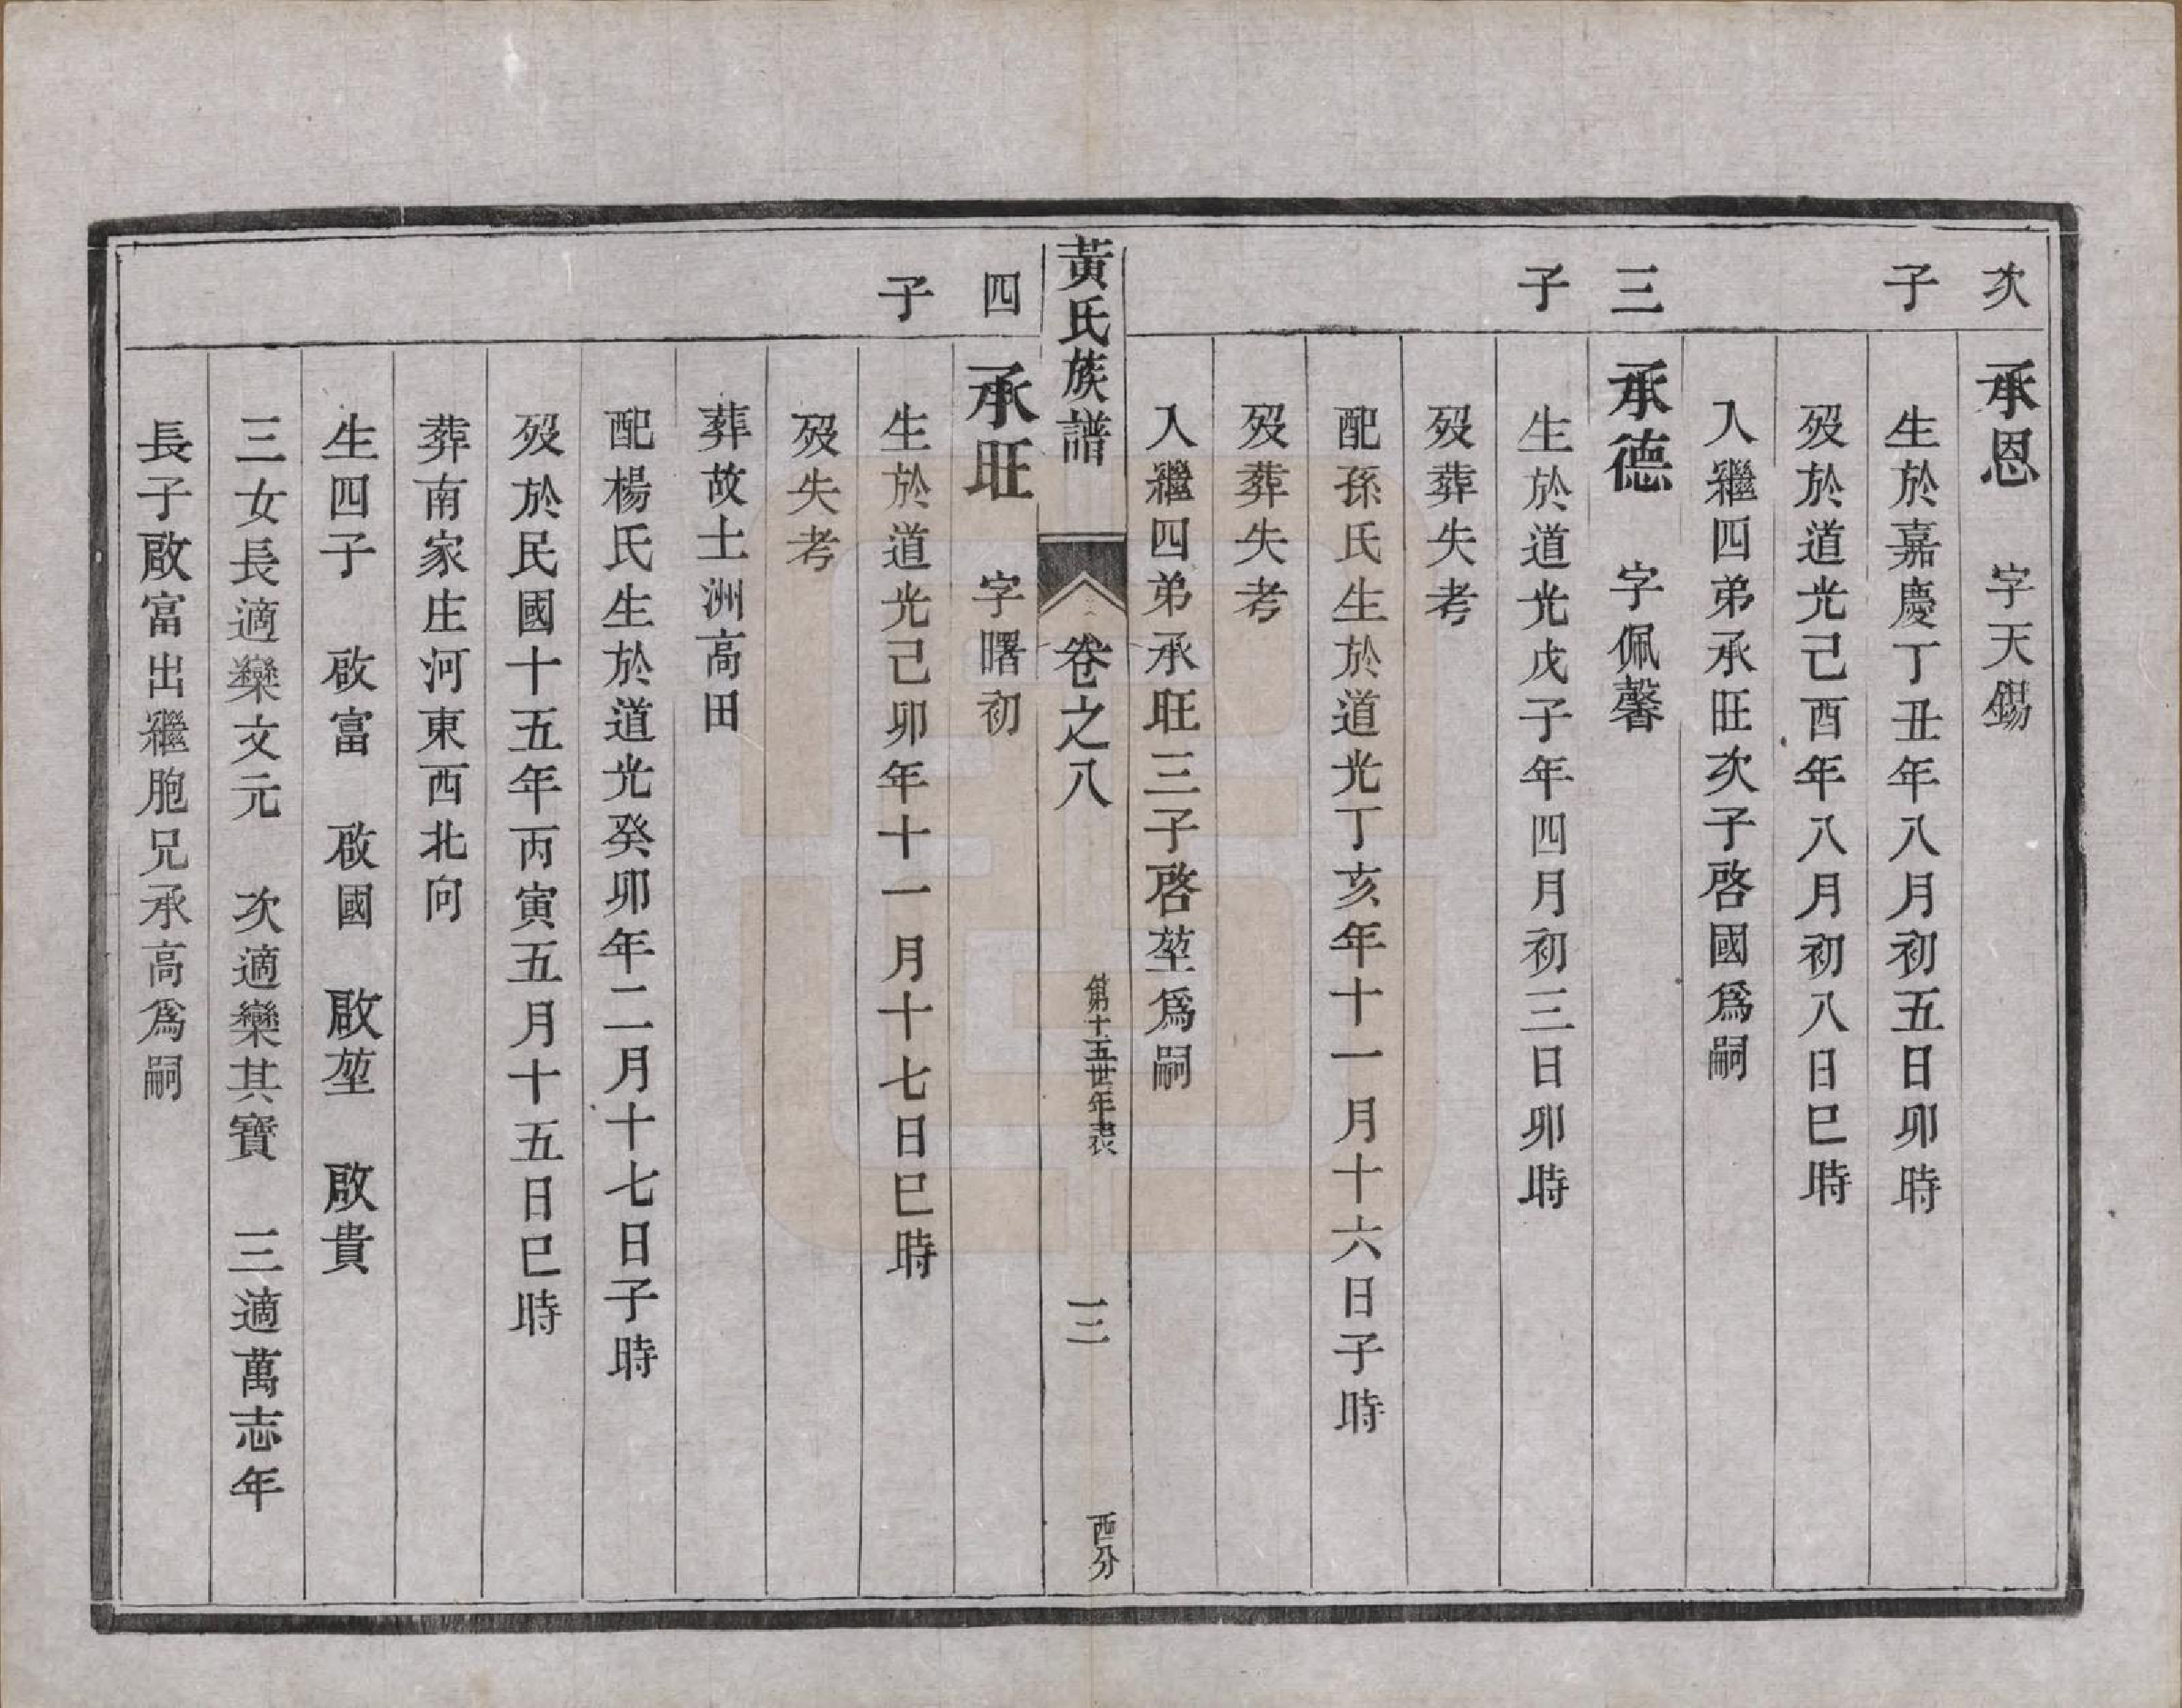 次子
承恩 字天錫
生於嘉慶丁丑年八月初五日卯時
歿於道光己酉年八月初八日巳時
入繼四弟承旺次子啓國爲嗣
三子
承德 字佩馨
生於道光戊子年四月初三日卯時
歿葬失考
配孫氏生於道光丁亥年十一月十六日子時
歿葬失考
入繼四弟承旺三子啓堃爲嗣
黃氏族譜 卷之八 第十五世年表 三 西分
四子
承旺 字曙初
生於道光己卯年十一月十七日巳時
歿失考
葬故土洲高田
配楊氏生於道光癸卯年二月十七日子時
歿於民國十五年丙寅五月十五日巳時
葬南家庄河東西北向
生四子 啟富 啟國 啟堃 啟貴
三女長適欒文元 次適欒其寶 三適萬志年
長子啟富出繼胞兄承高爲嗣